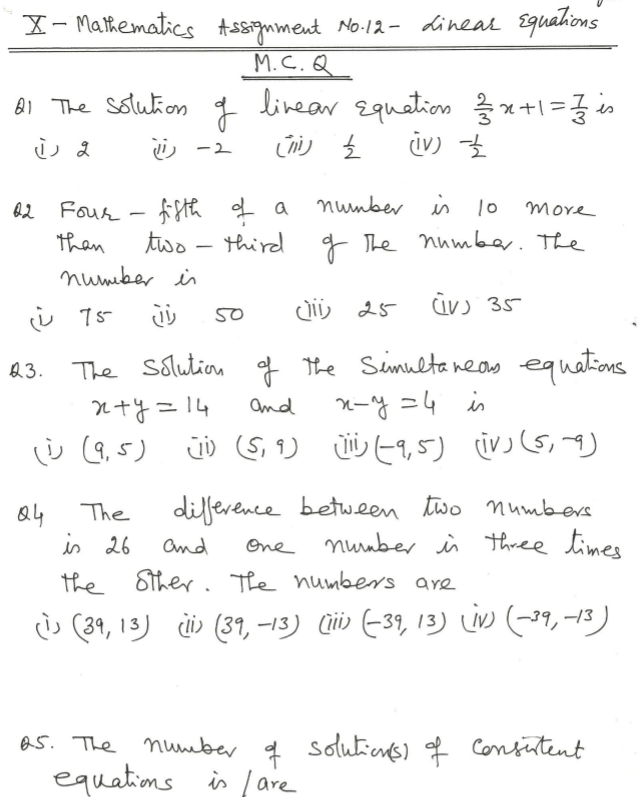 X - Mathematics Assignment No.12 - Linear Equations
M.C.Q
Q1 The solution of linear equation 2/3 x + 1 = 7/3 is
(i) 2 (ii) -2 (iii) 1/2 (iv) -1/2
Q2 Four - fifth of a number is 10 more
than two - third of the number. The
number is
(i) 75 (ii) 50 (iii) 25 (iv) 35
Q3. The solution of the simultaneous equations
x+y = 14 and x-y = 4 is
(i) (9, 5) (ii) (5, 9) (iii) (-9, 5) (iv) (5, -9)
Q4 The difference between two numbers
is 26 and one number is three times
the other. The numbers are
(i) (39, 13) (ii) (39, -13) (iii) (-39, 13) (iv) (-39, -13)
Q5. The number of solution(s) of consistent
equations is / are